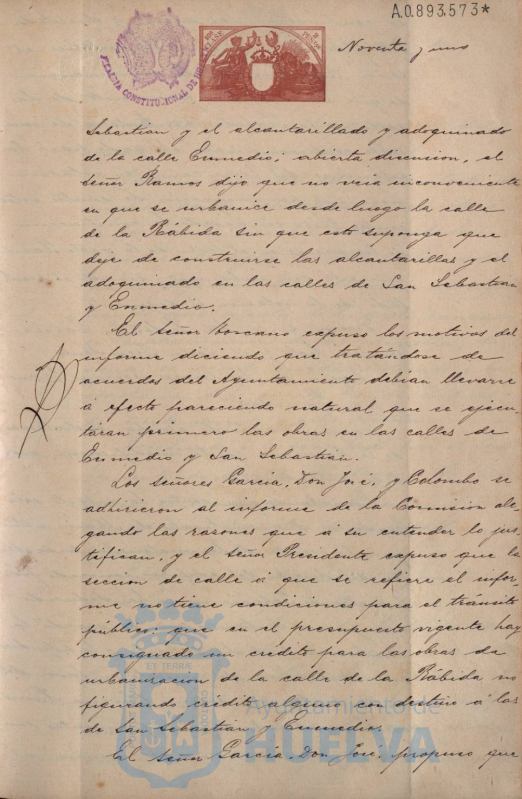 A.0.893.573*
Noventa y uno
ALCALDIA CONSTITUCIONAL DE HUELVA
Sebastian y el alcantarillado y adoquinado
de la calle Enmedio; abierta discusion, el
Señor Ramos dijo que no veia inconveniente
en que se urbanice desde luego la calle
de la Rábida sin que esto suponga que
deje de construirse las alcantarillas y el
adoquinado en las calles de San Sebastian
y Enmedio.
El Señor Toscano expuso los motivos del
informe diciendo que tratándose de
acuerdos del Ayuntamiento debian llevarse
á efecto pareciendo natural que se ejecu-
táran primero las obras en las calles de
Enmedio y San Sebastian.
Los Señores Garcia, Don José, y Colombo se
adhirieron al informe de la Comision ale
gando las razones que á su entender lo jus-
tifican, y el señor Presidente expuso que la
seccion de calle á que se refiere el infor-
me no tiene condiciones para el tránsito
público; que en el presupuesto vigente hay
consignado un credito para las obras de
urbanizacion de la calle de la Rábida no
figurando crédito alguno con destino á las
de San Sebastian y Enmedio.
El Señor Garcia, Don José, propuso que
Ayuntamiento de
HUELVA